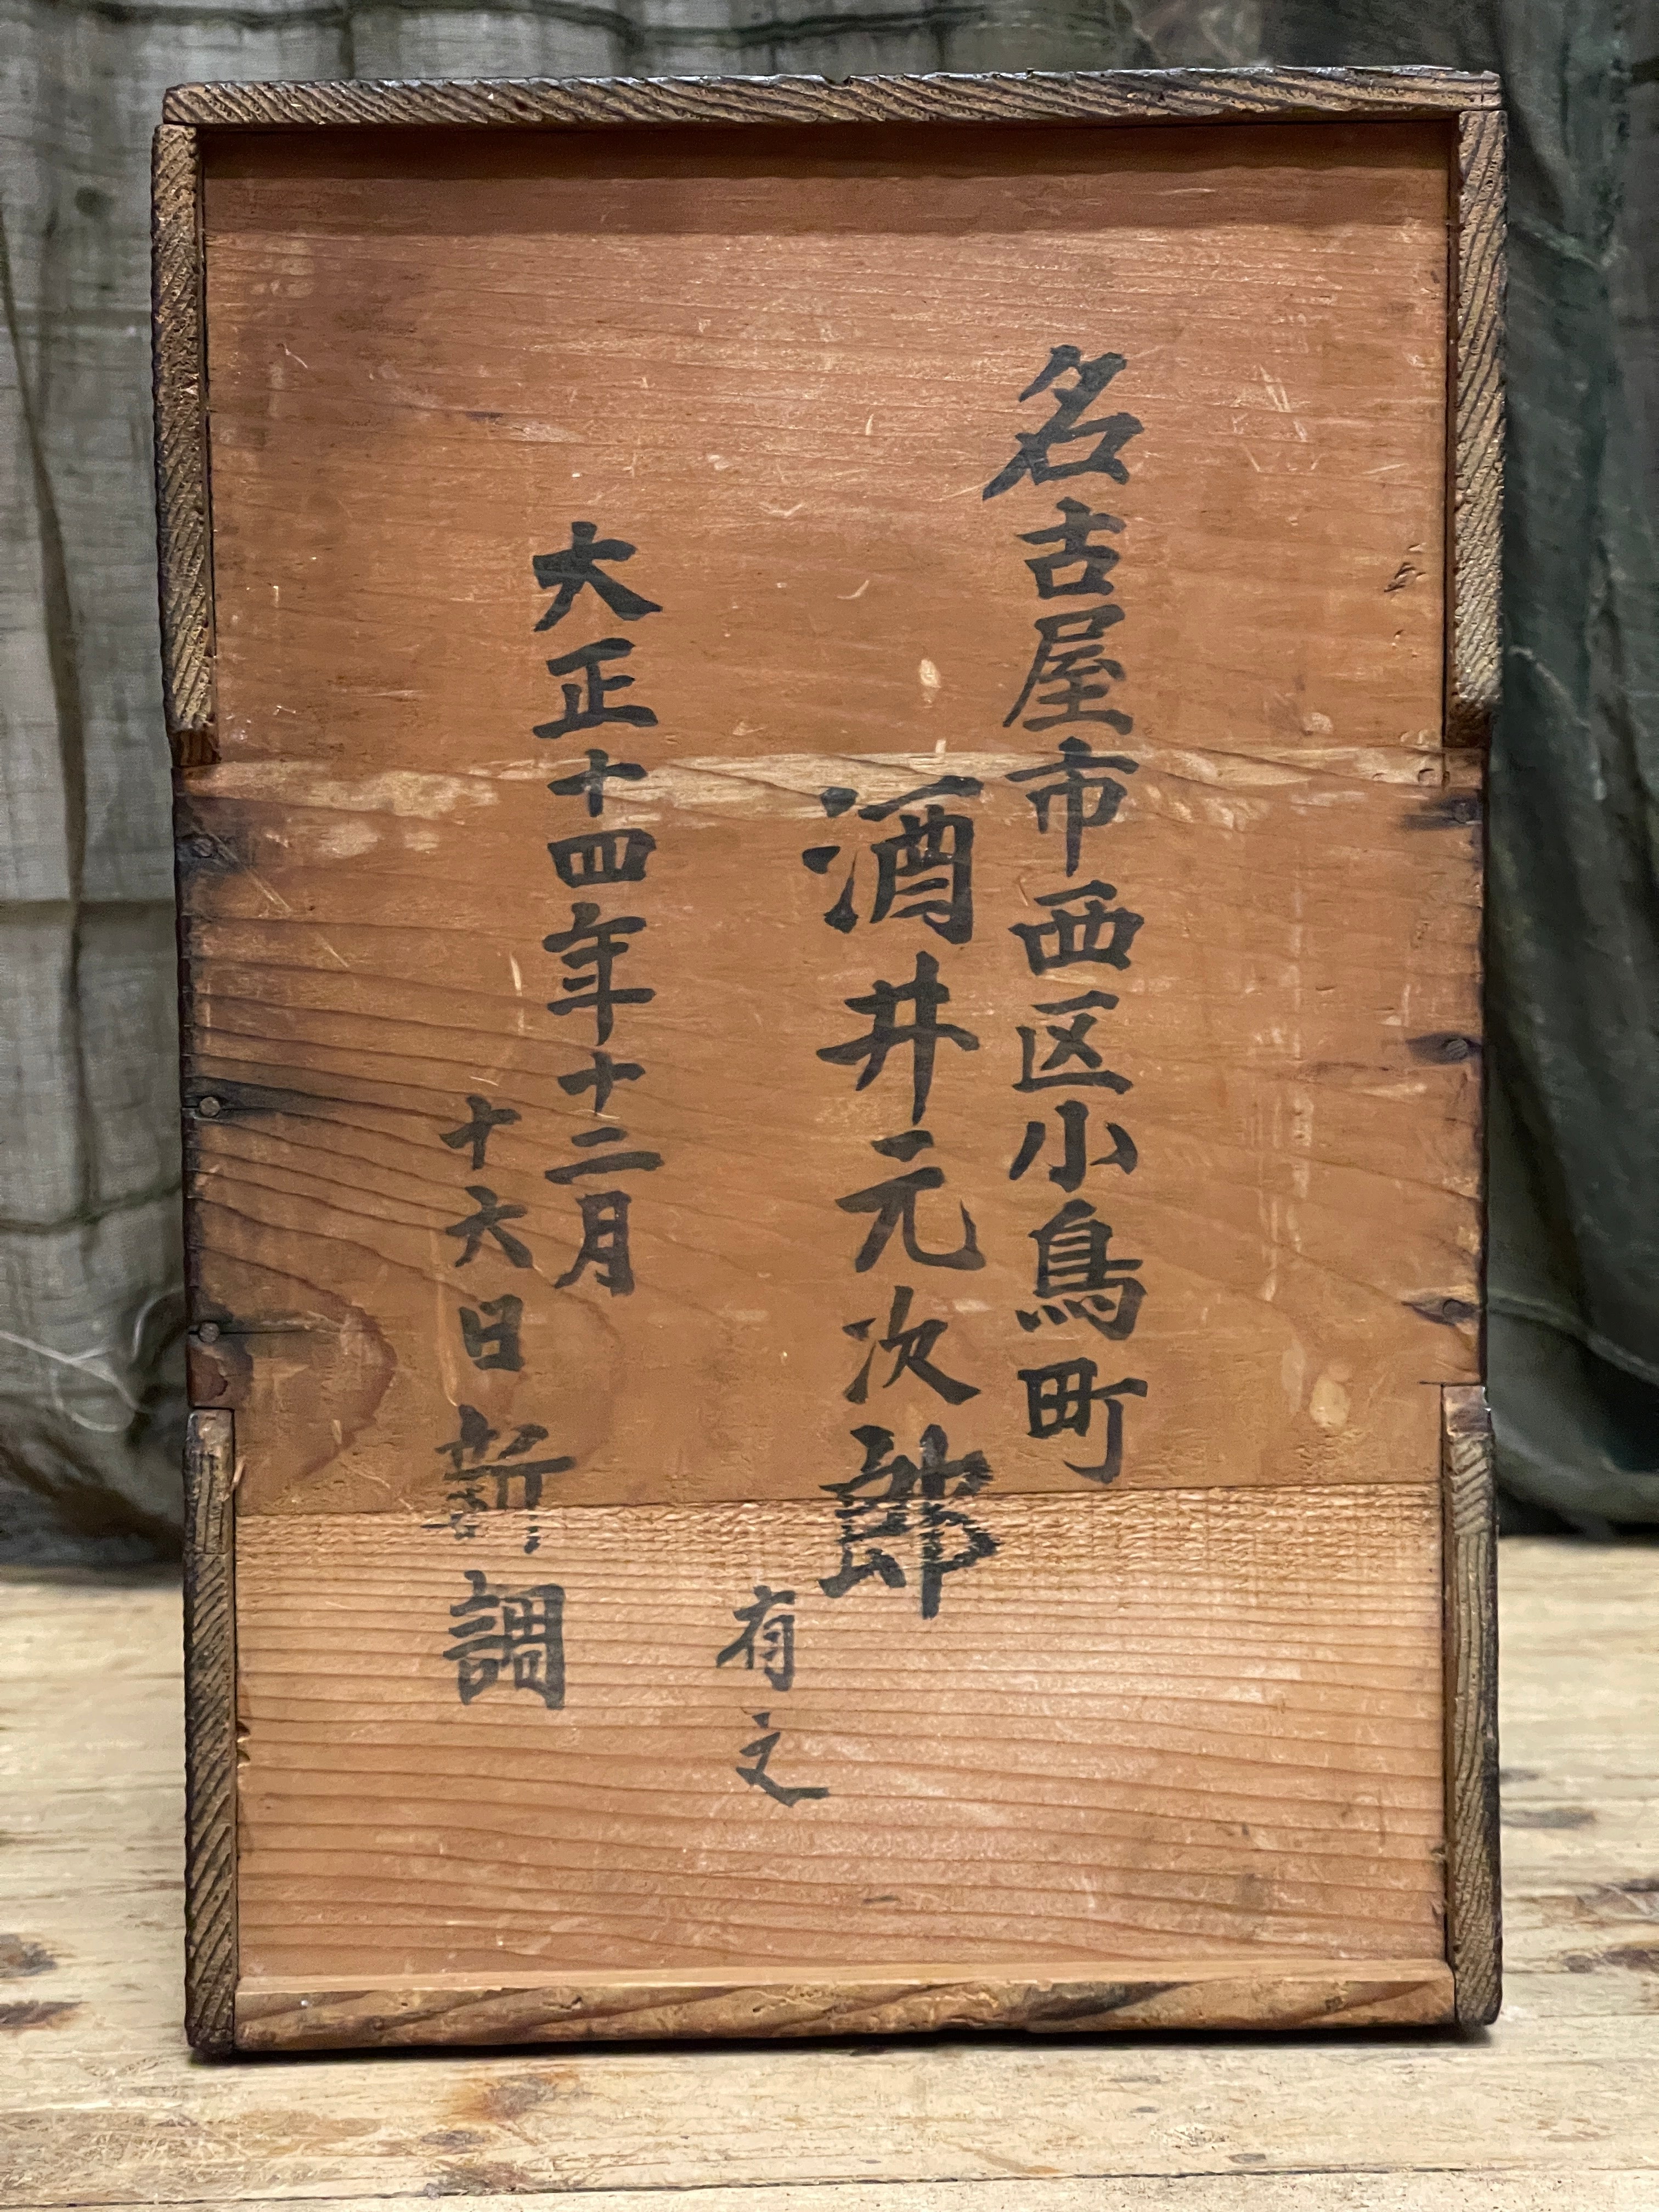 名古屋市西区小鳥町
酒井元次郎
有之
大正十四年十二月
十六日新調